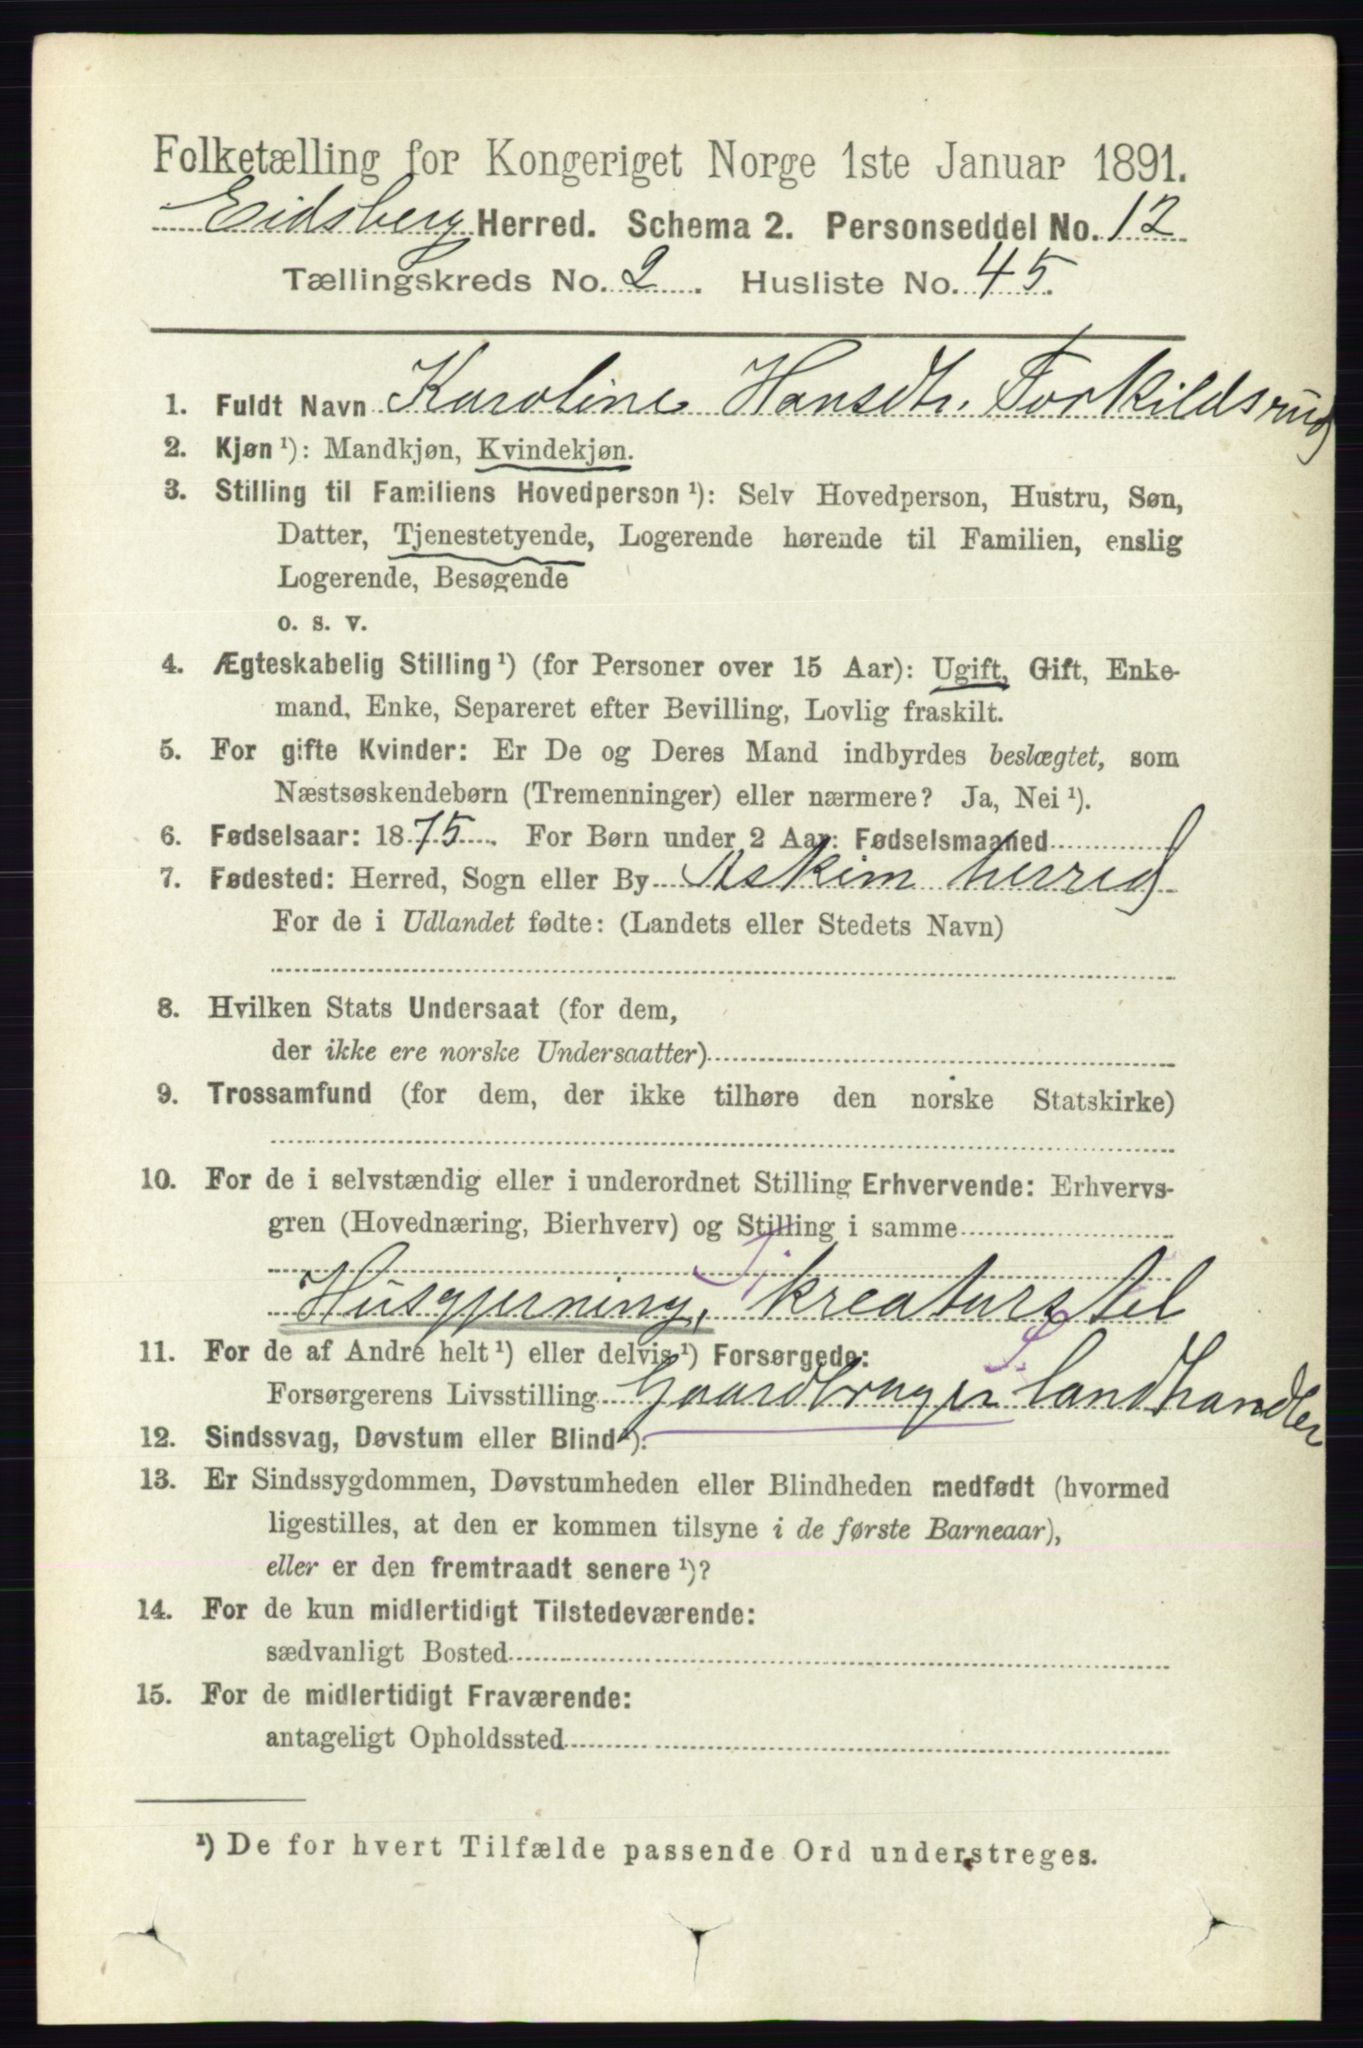 Folketælling for Kongeriget Norge 1ste Januar 1891.
Eidsberg Herred. Schema 2. Personseddel No. 12
Tællingskreds No. 2. Husliste No. 45.
1. Fuldt Navn Karoline Hansdtr. Torkildsrud
2. Kjøn ¹): Mandkjøn, Kvindekjøn.
3. Stilling til Familiens Hovedperson ¹): Selv Hovedperson, Hustru, Søn,
Datter, Tjenestetyende, Logerende hørende til Familien, enslig
Logerende, Besøgende
o. s. v.
4. Ægteskabelig Stilling ¹) (for Personer over 15 Aar): Ugift, Gift, Enke-
mand, Enke, Separeret efter Bevilling, Lovlig fraskilt.
5. For gifte Kvinder: Er De og Deres Mand indbyrdes beslægtet, som
Næstsøskendebørn (Tremenninger) eller nærmere? Ja, Nei ¹).
6. Fødselsaar: 1875. For Børn under 2 Aar: Fødselsmaaned
7. Fødested: Herred, Sogn eller By Askim herred
For de i Udlandet fødte: (Landets eller Stedets Navn)
8. Hvilken Stats Undersaat (for dem,
der ikke ere norske Undersaatter)
9. Trossamfund (for dem, der ikke tilhøre den norske Statskirke)
10. For de i selvstændig eller i underordnet Stilling Erhvervende: Erhvervs-
gren (Hovednæring, Bierhverv) og Stilling i samme
Husgjerning, kreaturstel
11. For de af Andre helt ¹) eller delvis ¹) Forsørgede:
Forsørgerens Livsstilling Gaardbruger landhandler
12. Sindssvag, Døvstum eller Blind ¹):
13. Er Sindssygdommen, Døvstumheden eller Blindheden medfødt (hvormed
ligestilles, at den er kommen tilsyne i de første Barneaar),
eller er den fremtraadt senere ¹)?
14. For de kun midlertidigt Tilstedeværende:
sædvanligt Bosted
15. For de midlertidigt Fraværende:
antageligt Opholdssted
¹) De for hvert Tilfælde passende Ord understreges.